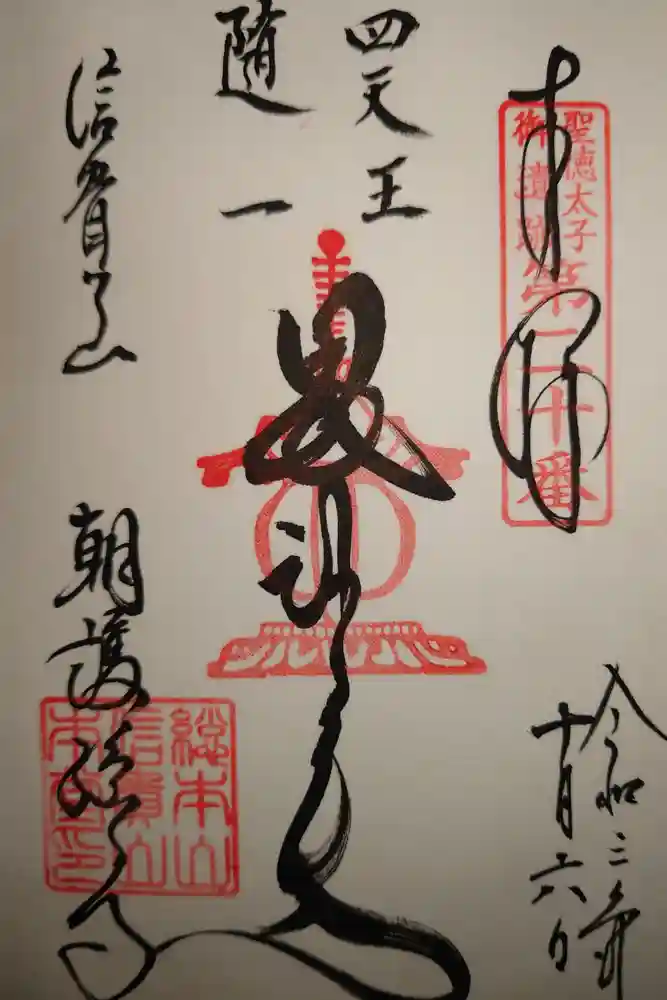 奉拝
聖徳太子
御遺跡第二十番
令和三年
十月六日
四天王
随一
毘沙門天
信貴山
朝護孫子
総本山
信貴山
本尊印